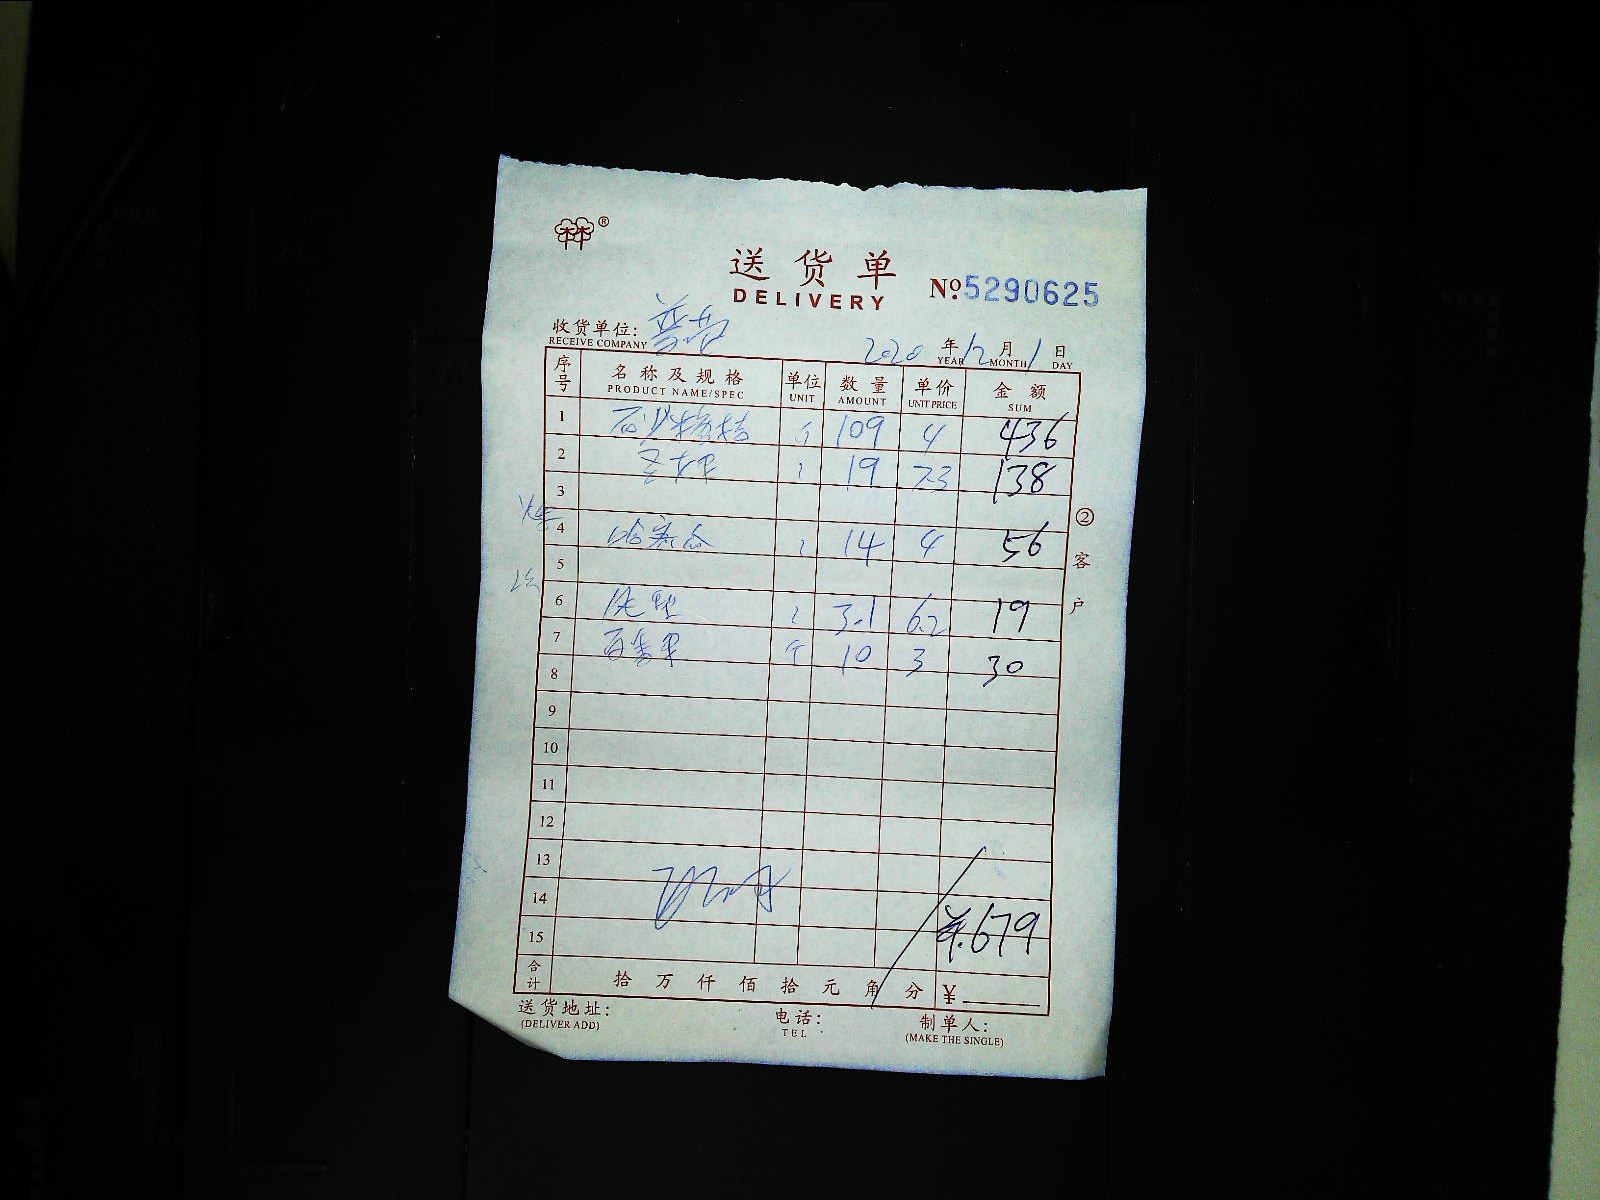 ®
送货单
DELIVERY
№5290625
收货单位:
RECEIVE COMPANY
2020 年 12 月 1 日
YEAR MONTH DAY
序号 名称及规格 单位 数量 单价 金额
PRODUCT NAME/SPEC UNIT AMOUNT UNIT PRICE SUM
1 个 109 4 436
2 19 7.3 138
3
4 哈密瓜 14 4 56
5
6 3.1 6.2 19
7 百香果 个 10 3 30
8
9
10
11
12
13
14
15
¥679
合计 拾 万 仟 佰 拾 元 角 分 ¥
②客户
送货地址:
(DELIVER ADD)
电话:
TEL
制单人:
(MAKE THE SINGLE)